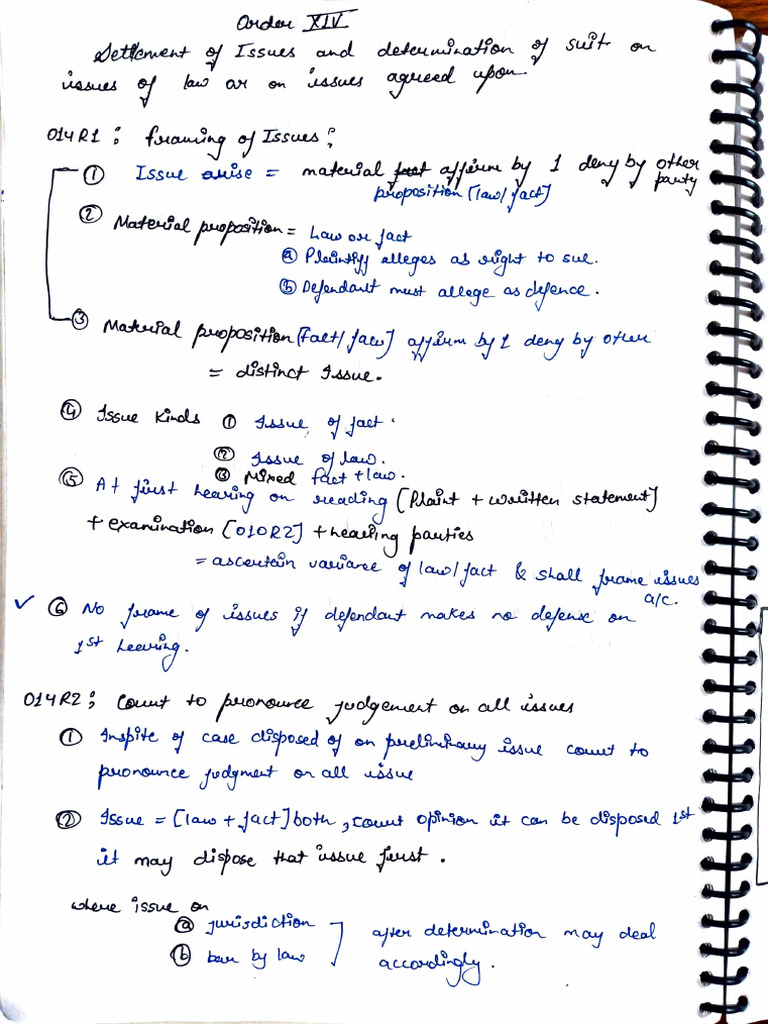 Order XIV
Settlement of Issues and determination of suit on
issues of law or on issues agreed upon.
O14R1 : framing of Issues :
① Issue arise = material fact affirm by 1 deny by other party
proposition [law/fact]
② Material proposition = Law or fact
ⓐ Plaintiff alleges as right to sue.
ⓑ Defendant must allege as defence.
③ Material proposition [Fact/law] affirm by 1 deny by other
= distinct Issue.
④ Issue Kinds ① Issue of fact.
② Issue of law.
③ Mixed fact + law.
⑤ At first hearing on reading [Plaint + written statement]
+ examination [O10R2] + hearing parties
= ascertain variance of law/fact & shall frame issues
a/c.
✓ ⑥ No frame of issues if defendant makes no defense on
1st hearing.
O14R2 : Court to pronounce judgement on all issues
① Inspite of case disposed of on preliminary issue court to
pronounce judgment on all issue
② Issue = [law + fact] both, court opinion it can be disposed 1st
it may dispose that issue first.
where issue on
ⓐ jurisdiction
ⓑ bar by law
after determination may deal
accordingly.